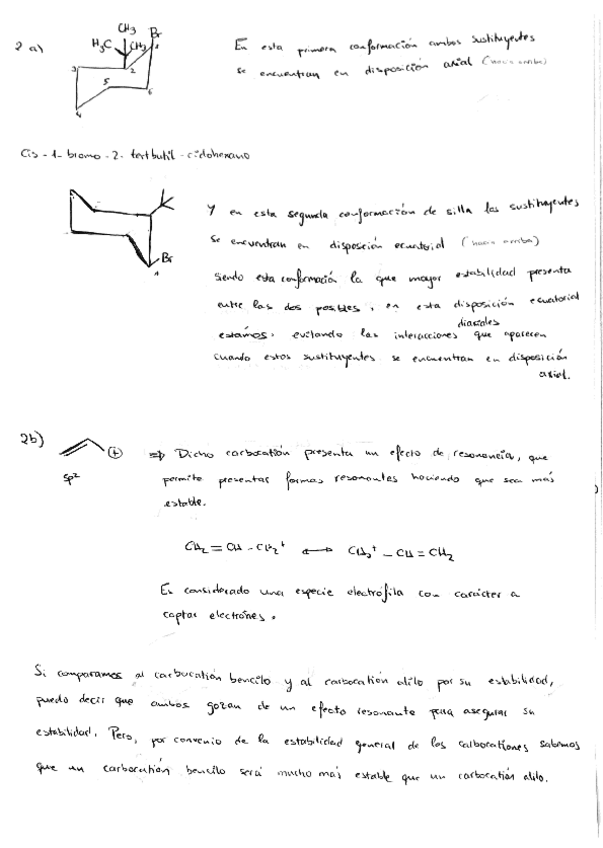 2 a)
CH3 Br
H3C CH3 1
3 2
5
6
4
En esta primera conformación ambos sustituyentes
se encuentran en disposición axial (hacia arriba)
Cis-1-bromo-2-tertbutil-ciclohexano
Y en esta segunda conformación de silla los sustituyentes
se encuentran en disposición ecuatorial (hacia arriba)
Br
1
siendo esta conformación la que mayor estabilidad presenta
entre las dos posibles, en esta disposición ecuatorial
estamos evitando las interacciones diaxiales que aparecen
cuando estos sustituyentes se encuentran en disposición
axial.
2b)
+ ⇒ Dicho carbocatión presenta un efecto de resonancia, que
sp2
permite presentar formas resonantes haciendo que sea más
estable.
CH2 = CH - CH2+ ↔ CH2+ - CH = CH2
Es considerado una especie electrófila con carácter a
captar electrones.
Si comparamos al carbocatión bencilo y al carbocatión alilo por su estabilidad,
puedo decir que ambos gozan de un efecto resonante para asegurar su
estabilidad. Pero, por convenio de la estabilidad general de los carbocationes sabemos
que un carbocatión bencilo será mucho más estable que un carbocatión alilo.